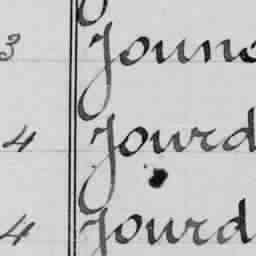 3 Jouno
4 Jourd
4 Jourd